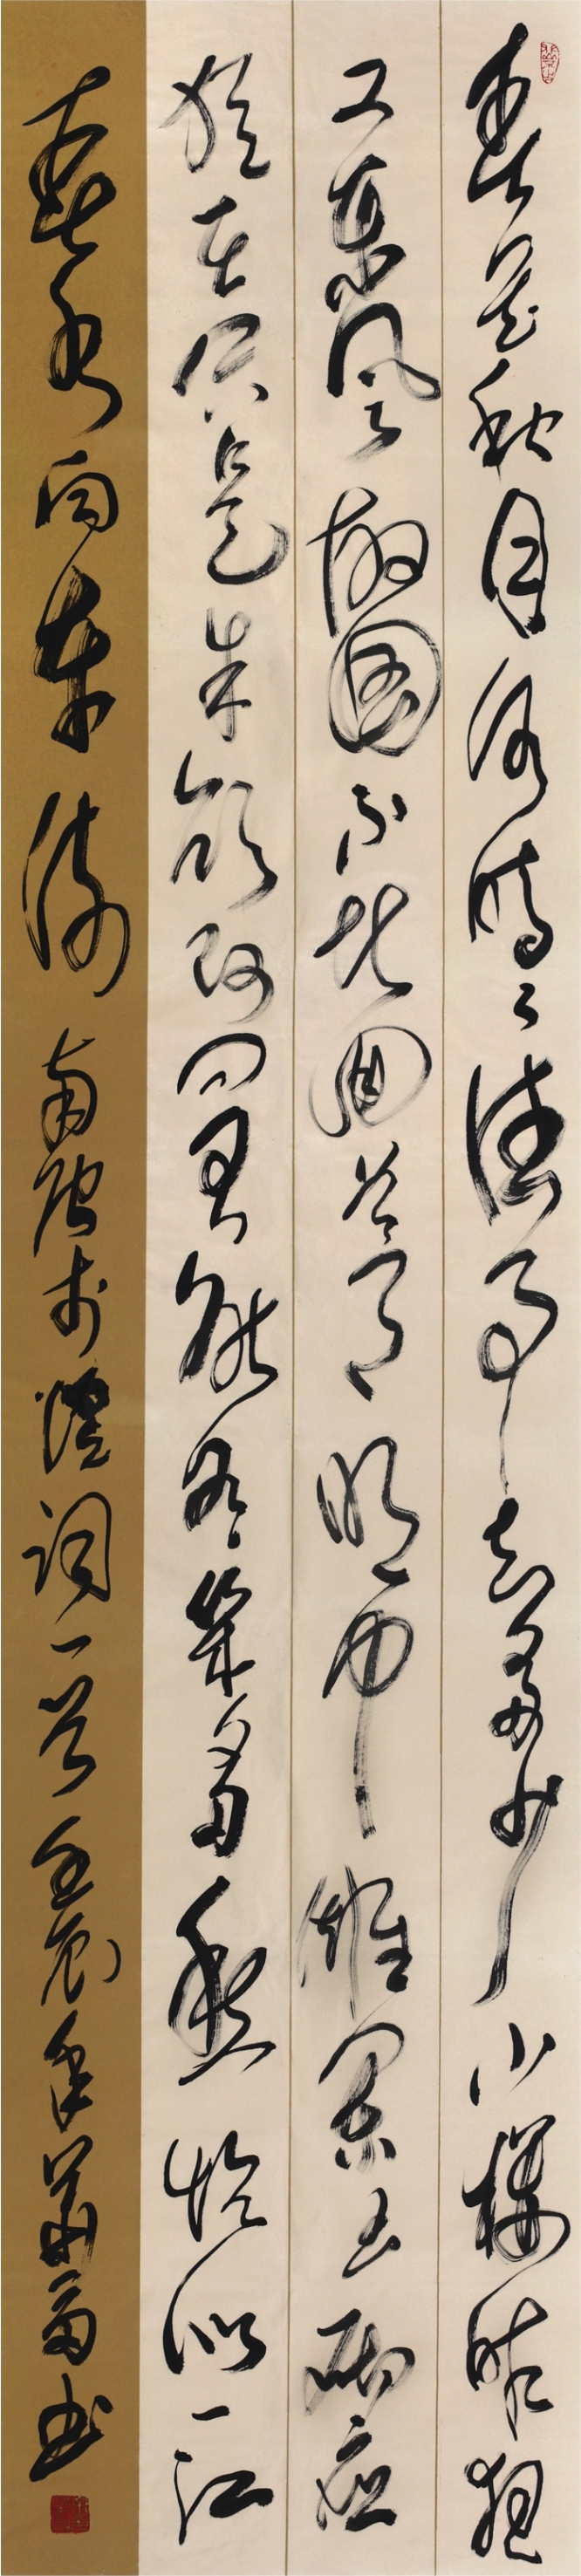 春花秋月何時了往事知多少小樓昨夜
又東風故國不堪回首月明中雕闌玉砌應
猶在只是朱顏改問君能有幾多愁恰似一江
春水向東流 南唐李煜詞一首 壬辰年書